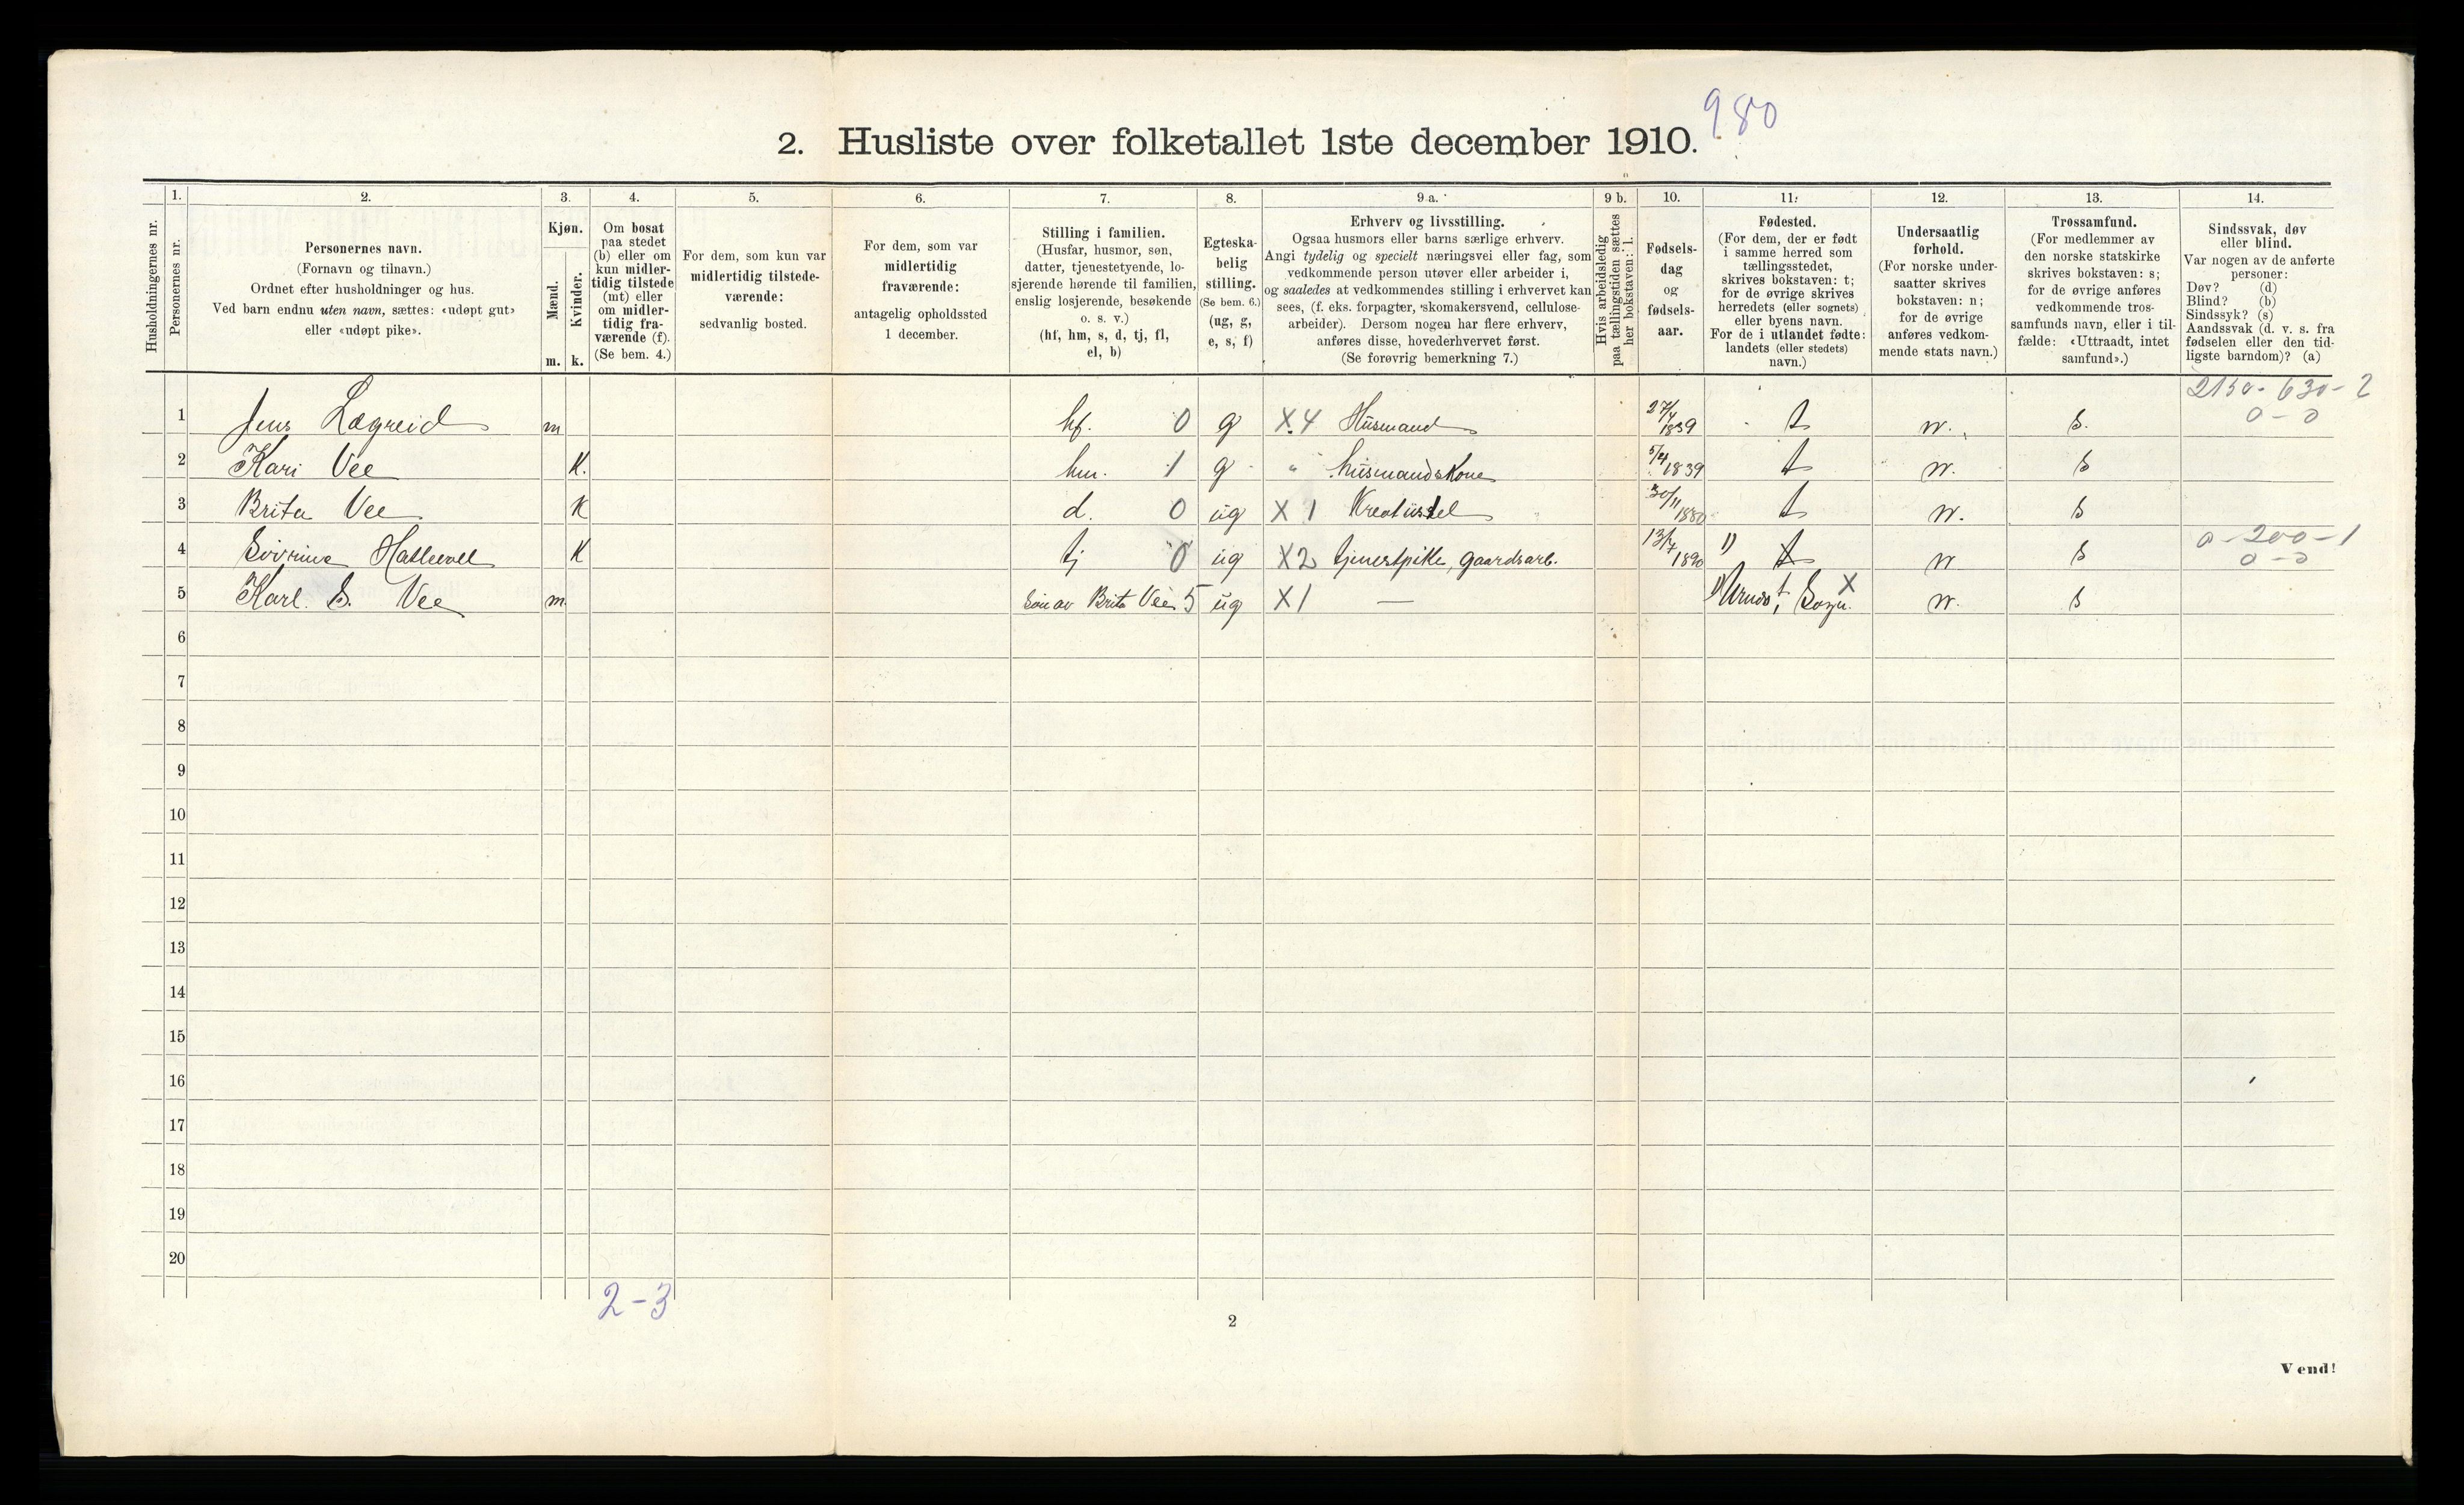 980
2. Husliste over folketallet 1ste december 1910.
Husholdningernes nr.
1.
Personernes nr.
2.
Personernes navn.
(Fornavn og tilnavn.)
Ordnet efter husholdninger og hus.
Ved barn endnu uten navn, sættes: «udøpt gut»
eller «udøpt pike».
3.
Kjøn.
Mænd.
m.
Kvinder.
k.
4.
Om bosat
paa stedet
(b) eller om
kun midler-
tidig tilstede
(mt) eller
om midler-
tidig fra-
værende (f).
(Se bem. 4.)
5.
For dem, som kun var
midlertidig tilstede-
værende:
sedvanlig bosted.
6.
For dem, som var
midlertidig
fraværende:
antagelig opholdssted
1 december.
7.
Stilling i familien.
(Husfar, husmor, søn,
datter, tjenestetyende, lo-
sjerende hørende til familien,
enslig losjerende, besøkende
o. s. v.)
(hf, hm, s, d, tj, fl,
el, b)
8.
Egteska-
belig
stilling.
(Se bem. 6.)
(ug, g,
e, s, f)
9 a.
Erhverv og livsstilling.
Ogsaa husmors eller barns særlige erhverv.
Angi tydelig og specielt næringsvei eller fag, som
vedkommende person utøver eller arbeider i,
og saaledes at vedkommendes stilling i erhvervet kan
sees, (f. eks. forpagter, skomakersvend, cellulose-
arbeider). Dersom nogen har flere erhverv,
anføres disse, hovederhvervet først.
(Se forøvrig bemerkning 7.)
9 b.
Hvis arbeidsledig
paa tællingstiden sættes
her bokstaven: l.
10.
Fødsels-
dag
og
fødsels-
aar.
11.
Fødested.
(For dem, der er født
i samme herred som
tællingsstedet,
skrives bokstaven: t;
for de øvrige skrives
herredets (eller sognets)
eller byens navn.
For de i utlandet fødte:
landets (eller stedets)
navn.)
12.
Undersaatlig
forhold.
(For norske under-
saatter skrives
bokstaven: n;
for de øvrige
anføres vedkom-
mende stats navn.)
13.
Trossamfund.
(For medlemmer av
den norske statskirke
skrives bokstaven: s;
for de øvrige anføres
vedkommende tros-
samfunds navn, eller i til-
fælde: «Uttraadt, intet
samfund».)
14.
Sindssvak, døv
eller blind.
Var nogen av de anførte
personer:
Døv? (d)
Blind? (b)
Sindssyk? (s)
Aandssvak (d. v. s. fra
fødselen eller den tid-
ligste barndom)? (a)
2130 - 630 - 2
1 Jens Lægreid m hf. 0 g X 4 Husmand 27/4 1839 t n. s. 0 - 0
2 Kari Vee K. hm. 1 g " husmandskone 5/4 1839 t n. s
3 Brita Vee K d. 0 ug X 1 Kreaturstel 30/11 1880 t n. s
0 - 200 - 1
4 Hatlevoll K tj 0 ug X2 tjenestpike, gaardsarb. 13/7 1890 1) t n s 0 - 0
5 Karl. S. Vee m. Søn av Brita Vee 5 ug X1 — 1) Sogn. X n. s
6
7
8
9
10
11
12
13
14
15
16
17
18
19
20
2 - 3
2
Vend!